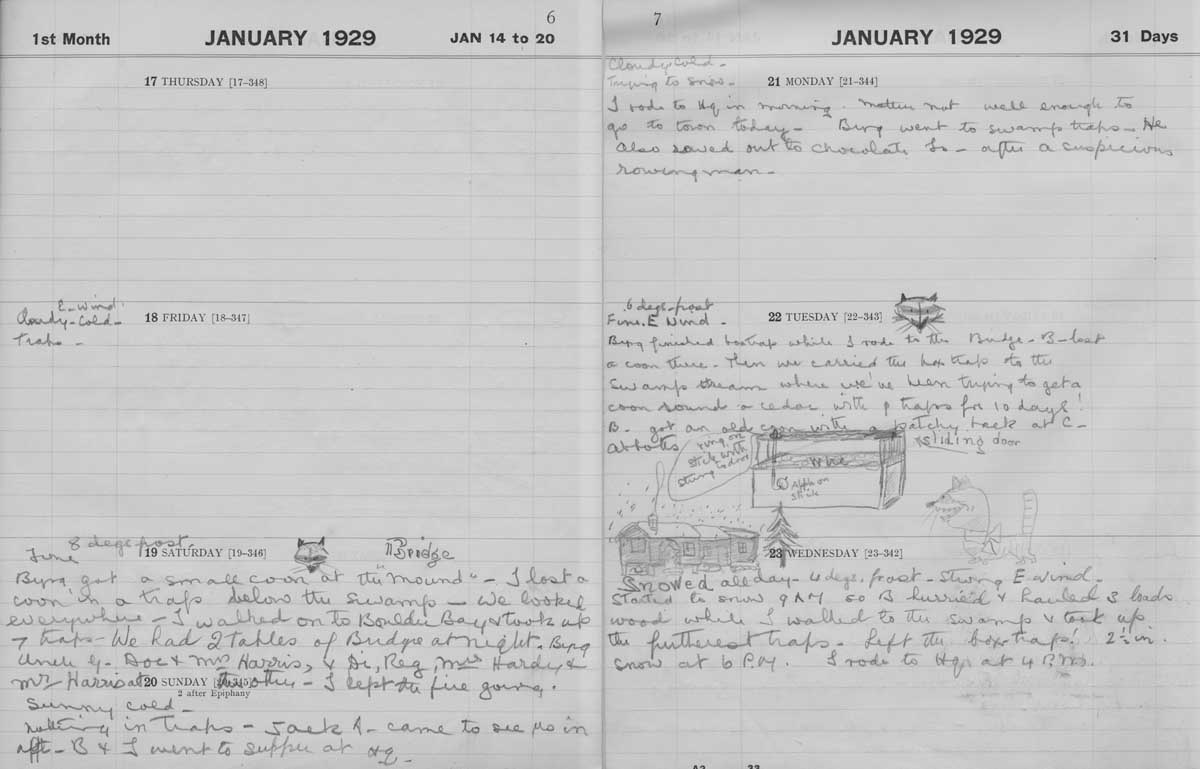 6
1st Month JANUARY 1929 JAN 14 to 20
17 THURSDAY [17-348]
E-wind
Cloudy-Cold-
Traps -
18 FRIDAY [18-347]
8 degs frost
Fine
19 SATURDAY [19-346]
Bridge
Byrg got a small coon at the "mound" - I lost a
coon in a trap below the swamp - We looked
everywhere - I walked on to Boulder Bay & took up
7 traps - We had 2 tables of Bridge at night. Byrg
Uncle G. Doc & Mrs Harris, & Di, Reg, Hardy &
Mr Harris at the other - I kept the fire going.
20 SUNDAY
2 after Epiphany
Sunny cold -
nothing in traps - Jack A - came to see us in
aft - B & I went to supper at HQ -
7
JANUARY 1929 31 Days
Cloudy-Cold -
Trying to snow -
21 MONDAY [21-344]
I rode to Hq in morning. Mother not well enough to
go to town today - Byrg went to swamp traps - He
also rowed out to Chocolate Is - after a suspicious
rowing man -
6 degs-frost
Fine. E Wind -
22 TUESDAY [22-343]
Byrg finished boxtrap while I rode to the Bridge - B - lost
a coon there - Then we carried the box trap to the
swamp stream where we've been trying to get a
coon round a cedar with 9 traps for 10 days!
B - got an old coon with a patchy back at C -
Abbotts
rung on
stick with
string to door
wire
Apple on
stick
sliding door
23 WEDNESDAY [23-342]
Snowed all day - 4 degs. frost - Strong E wind -
Started to snow 9 AM so B hurried & hauled 3 loads
wood while I walked to the swamp & took up
the furtherest traps - Left the box trap! 2½ in.
snow at 6 P.M. I rode to Hq at 4 P.M.